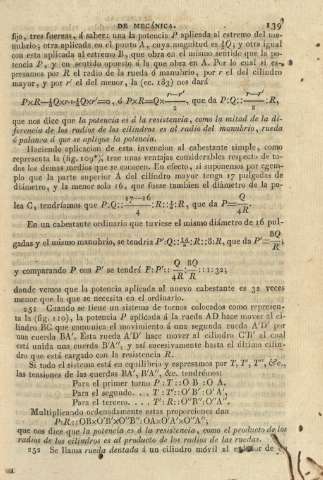 DE MECÁNICA. 139
fijo, tres fuerzas, á saber: una la potencia P aplicada al estremo del ma-
nubrio; otra aplicada en el punto A, cuya magnitud es ½Q; y otra igual
con esta aplicada al estremo B, que obra en el mismo sentido que la po-
tencia P, y en sentido opuesto á la que obra en A. Por lo cual si es-
presamos por R el radio de la rueda ó manubrio, por r el del cilindro
mayor, y por r' el del menor, la (ec. 183) nos dará
P×R—½Q×r+½Q×r'=0, ó P×R=Q×(r—r')/2, que da P:Q::(r—r')/2:R,
que nos dice que la potencia es á la resistencia, como la mitad de la di-
ferencia de los radios de los cilindros es al radio del manubrio, rueda
ó palanca á que se aplique la potencia.
Haciendo aplicacion de esta invencion al cabestante simple, como
representa la (fig. 109*), trae unas ventajas considerables respecto de to-
dos los demas tornos que se conocen. En efecto, si suponemos por egem-
plo que la parte superior A del cilindro mayor tenga 17 pulgadas de
diámetro, y la menor solo 16, que fuese tambien el diámetro de la po-
lea C, tendríamos que P:Q::(17—16)/4:R::¼:R, que da P=Q/4R.
En un cabestante ordinario que tuviese el mismo diámetro de 16 pul-
gadas y el mismo manubrio, se tendria P':Q::16/2:R::8:R, que da P'=8Q/R;
y comparando P con P' se tendrá P:P'::Q/4R:8Q/R::1:32;
donde vemos que la potencia aplicada al nuevo cabestante es 32 veces
menor que la que se necesita en el ordinario.
251 Cuando se tiene un sistema de tornos colocados como represen-
ta la (fig. 110), la potencia P aplicada á la rueda AD hace mover al ci-
lindro BC que comunica el movimiento á una segunda rueda A'D' por
una cuerda BA'. Esta rueda A'D' hace mover al cilindro C'B' el cual
está unida una cuerda B'A'', y así sucesivamente hasta el último cilin-
dro que está cargado con la resistencia R.
Si todo el sistema está en equilibrio y espresamos por T, T', T'', &c.,
las tensiones de las cuerdas BA', B'A'', &c. tendrémos:
Para el primer torno P:T::OB:OA,
Para el segundo. . . T:T'::O'B':O'A',
Para el tercero. . . . T':R::O''B'':O''A''.
Multiplicando ordenadamente estas proporciones dan
P:R::OB×O'B'×O''B'':OA×O'A'×O''A'';
que nos dice que la potencia es á la resistencia, como el producto de los
radios de los cilindros es al producto de los radios de las ruedas.
252 Se llama rueda dentada á un cilindro móvil al de